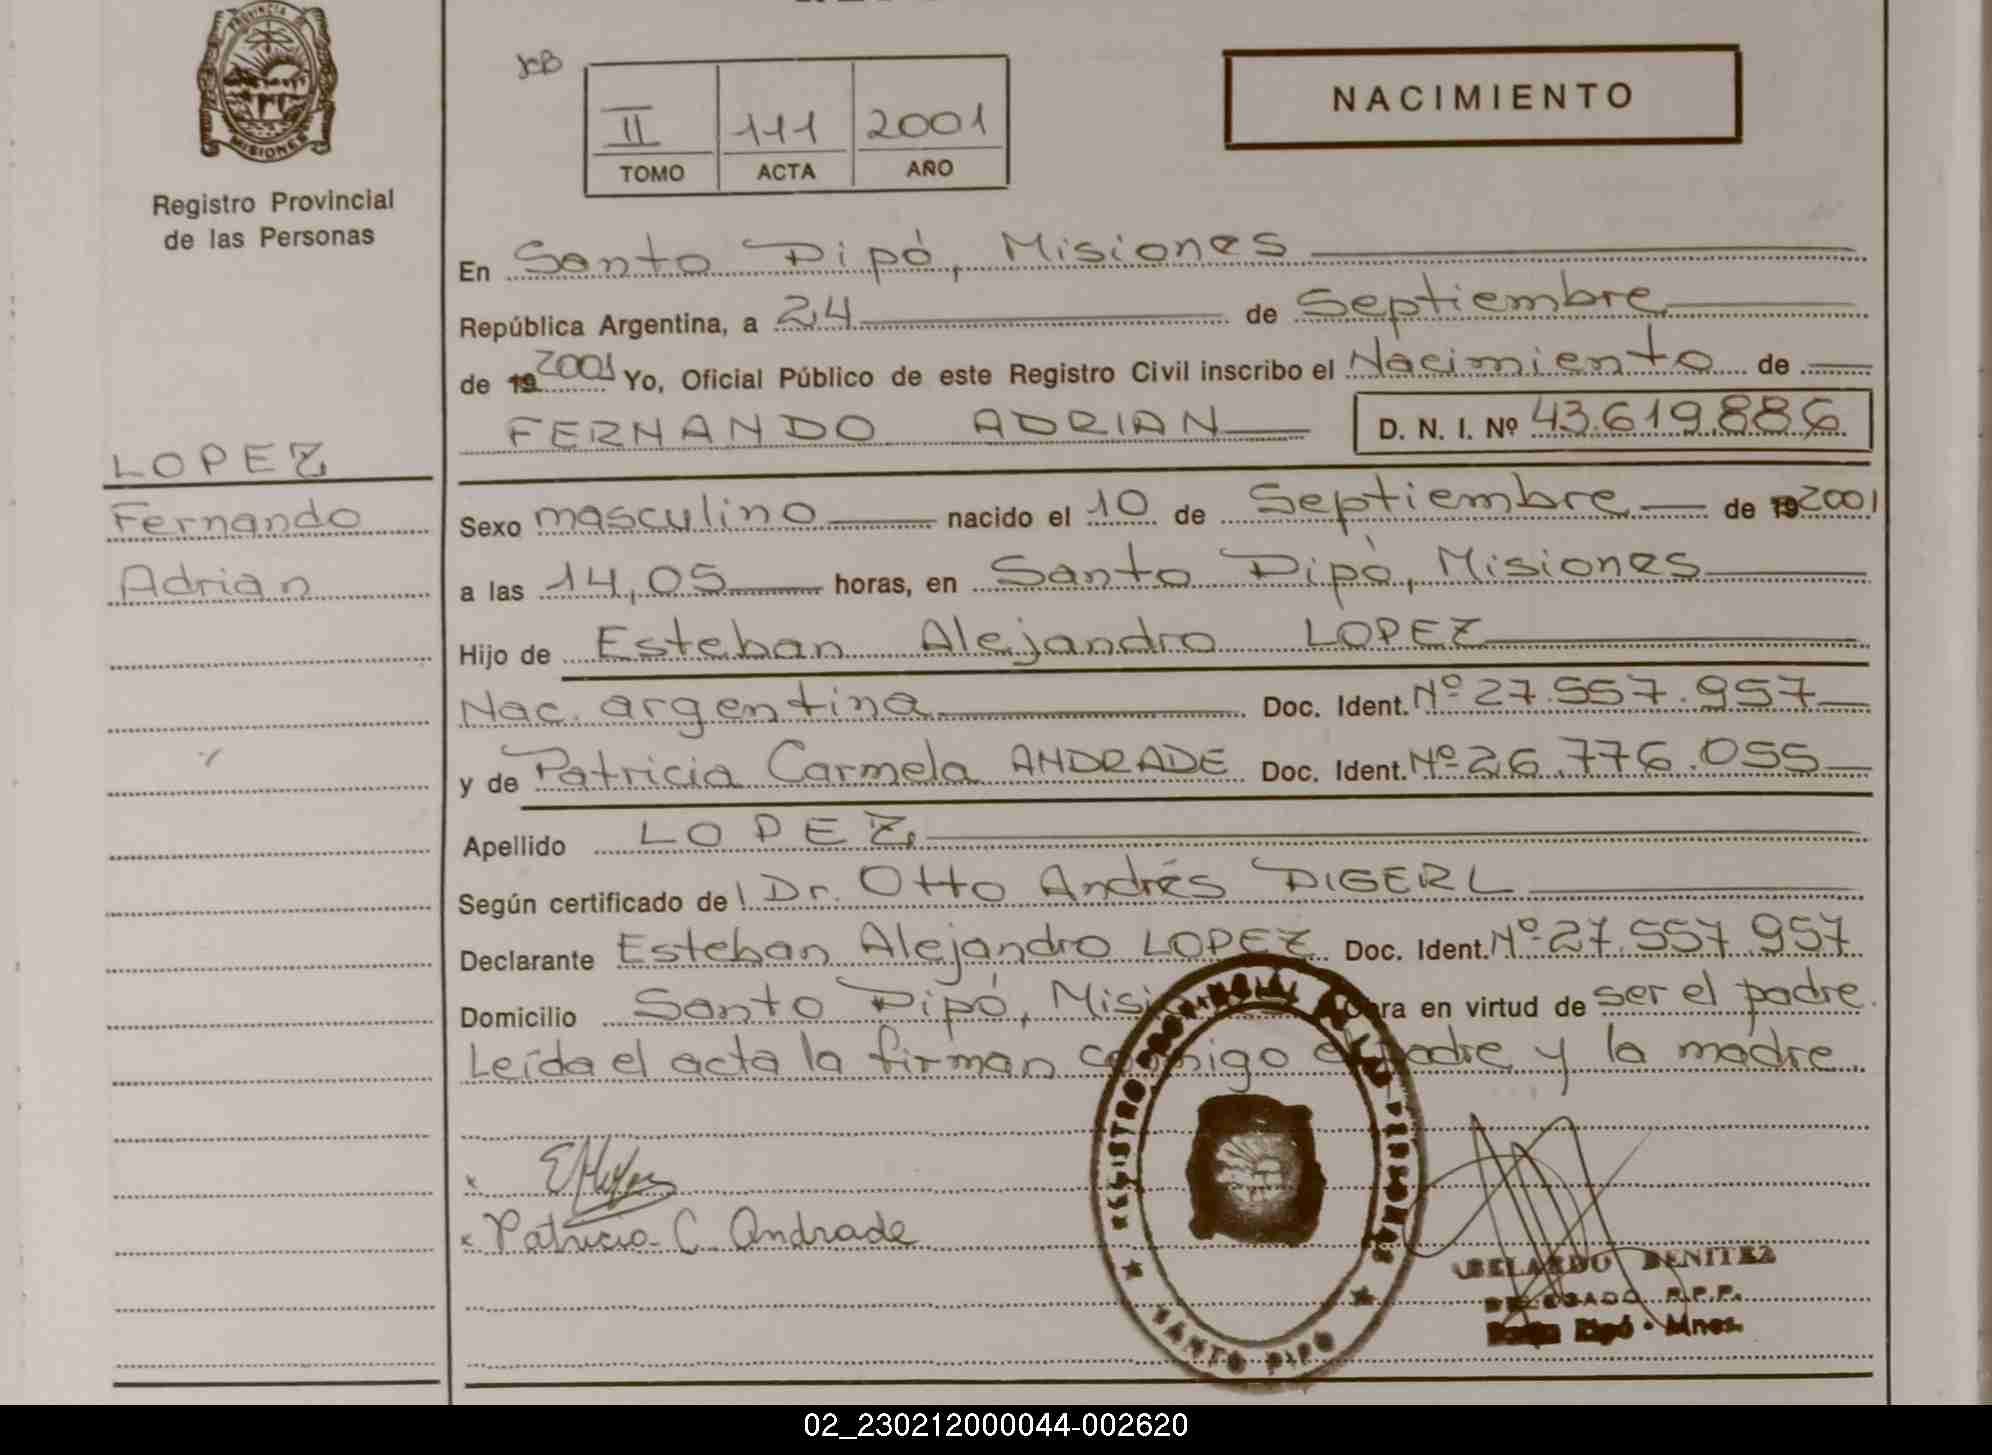 PROVINCIA DE
MISIONES
Registro Provincial
de las Personas
LOPEZ
Fernando
Adrian
JCB
II 111 2001
TOMO ACTA AÑO
NACIMIENTO
En Santo Pipó, Misiones
República Argentina, a 24 de Septiembre
de 19 2001 Yo, Oficial Público de este Registro Civil inscribo el Nacimiento de
FERNANDO ADRIAN D. N. I. Nº 43.619.886
Sexo masculino nacido el 10 de Septiembre de 19 2001
a las 14,05 horas, en Santo Pipó, Misiones
Hijo de Esteban Alejandro LOPEZ
Nac. argentina Doc. Ident. Nº 27.557.957
y de Patricia Carmela ANDRADE Doc. Ident. Nº 26.776.055
Apellido LOPEZ
Según certificado de Dr. Otto Andrés DIGERL
Declarante Esteban Alejandro LOPEZ Doc. Ident. Nº 27.557.957
Domicilio Santo Pipó, Obra en virtud de ser el padre.
Leída el acta la firman conmigo el padre y la madre.
x
x Patricia C. Andrade
REGISTRO PROVINCIAL DE LAS PERSONAS
SANTO PIPÓ
ABELARDO BENITEZ
DELEGADO R.P.P.
Santo Pipó - Mnes.
02_230212000044-002620